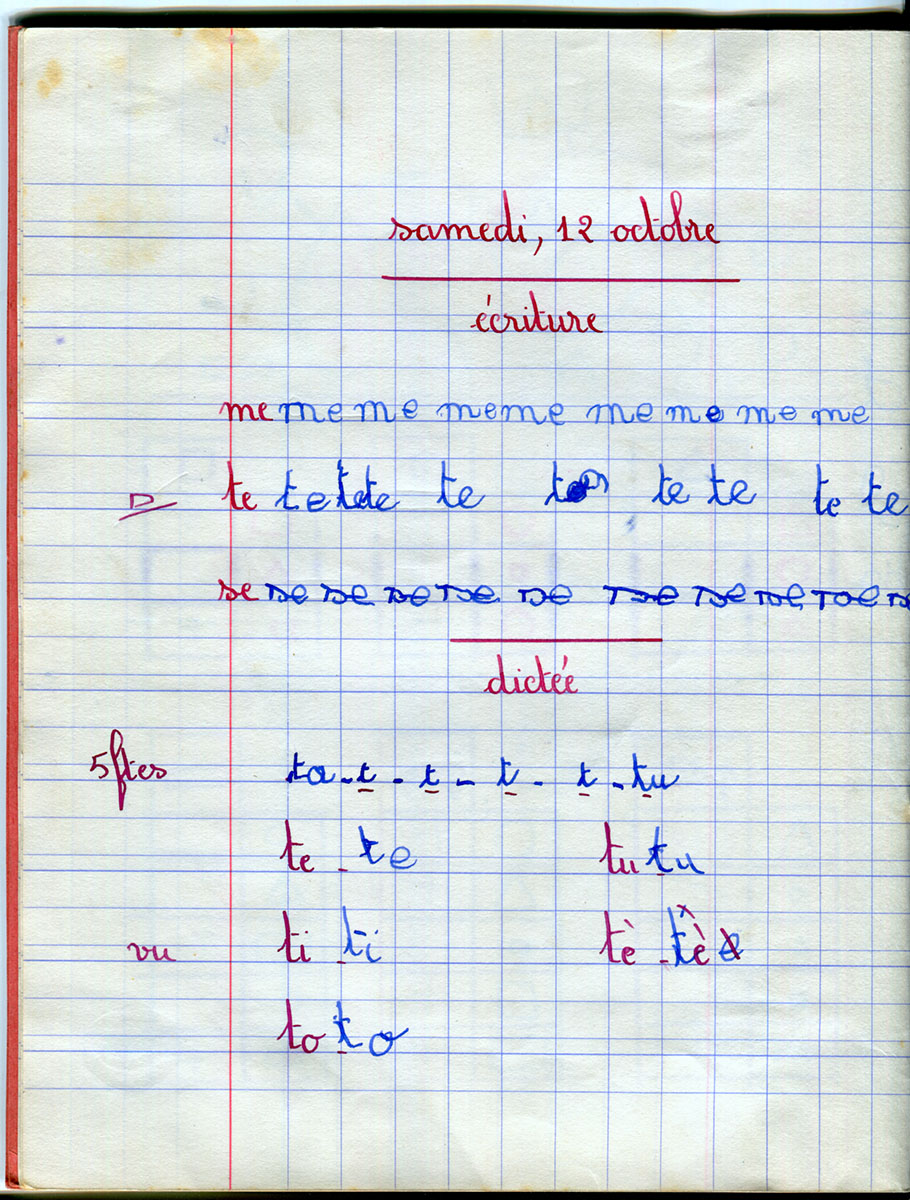 samedi, 12 octobre
écriture
me me me me me me me me me
te te te te te te te te te
se se se se se se se se se se
dictée
5 ftes ta - t - t - t - t - tu
te - te tu tu
vu ti ti tè - tè
to to